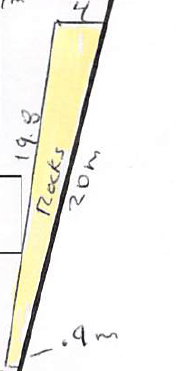 4
19.8
Rocks
20m
.9m